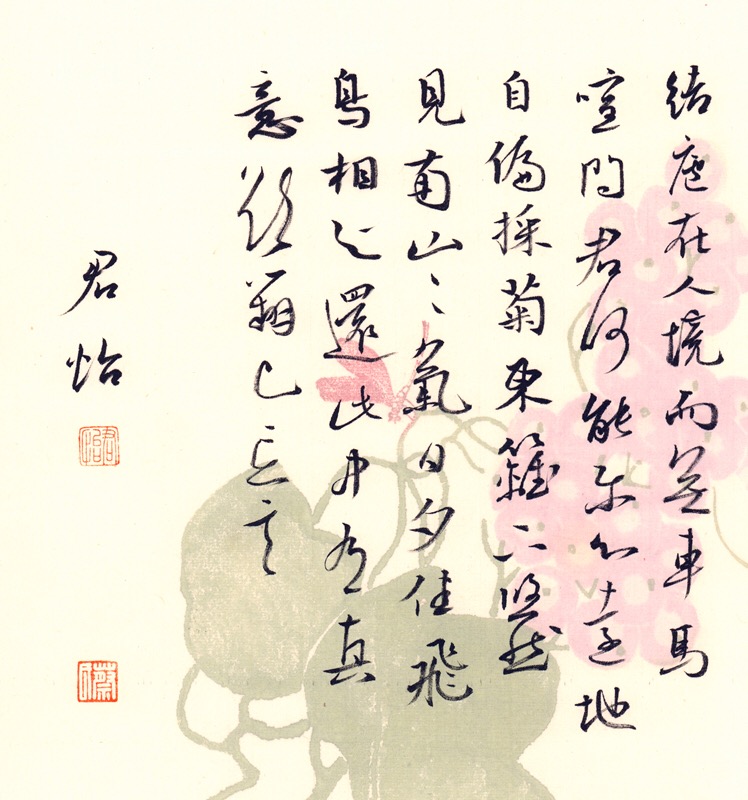 結廬在人境而無車馬
喧問君何能爾心遠地
自偏採菊東籬下悠然
見南山〻氣日夕佳飛
鳥相與還此中有真
意欲辨已忘言
君怡
君怡